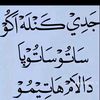 جدي كنله اكو
ساتو ساتوڽا
دالم هاتيمو